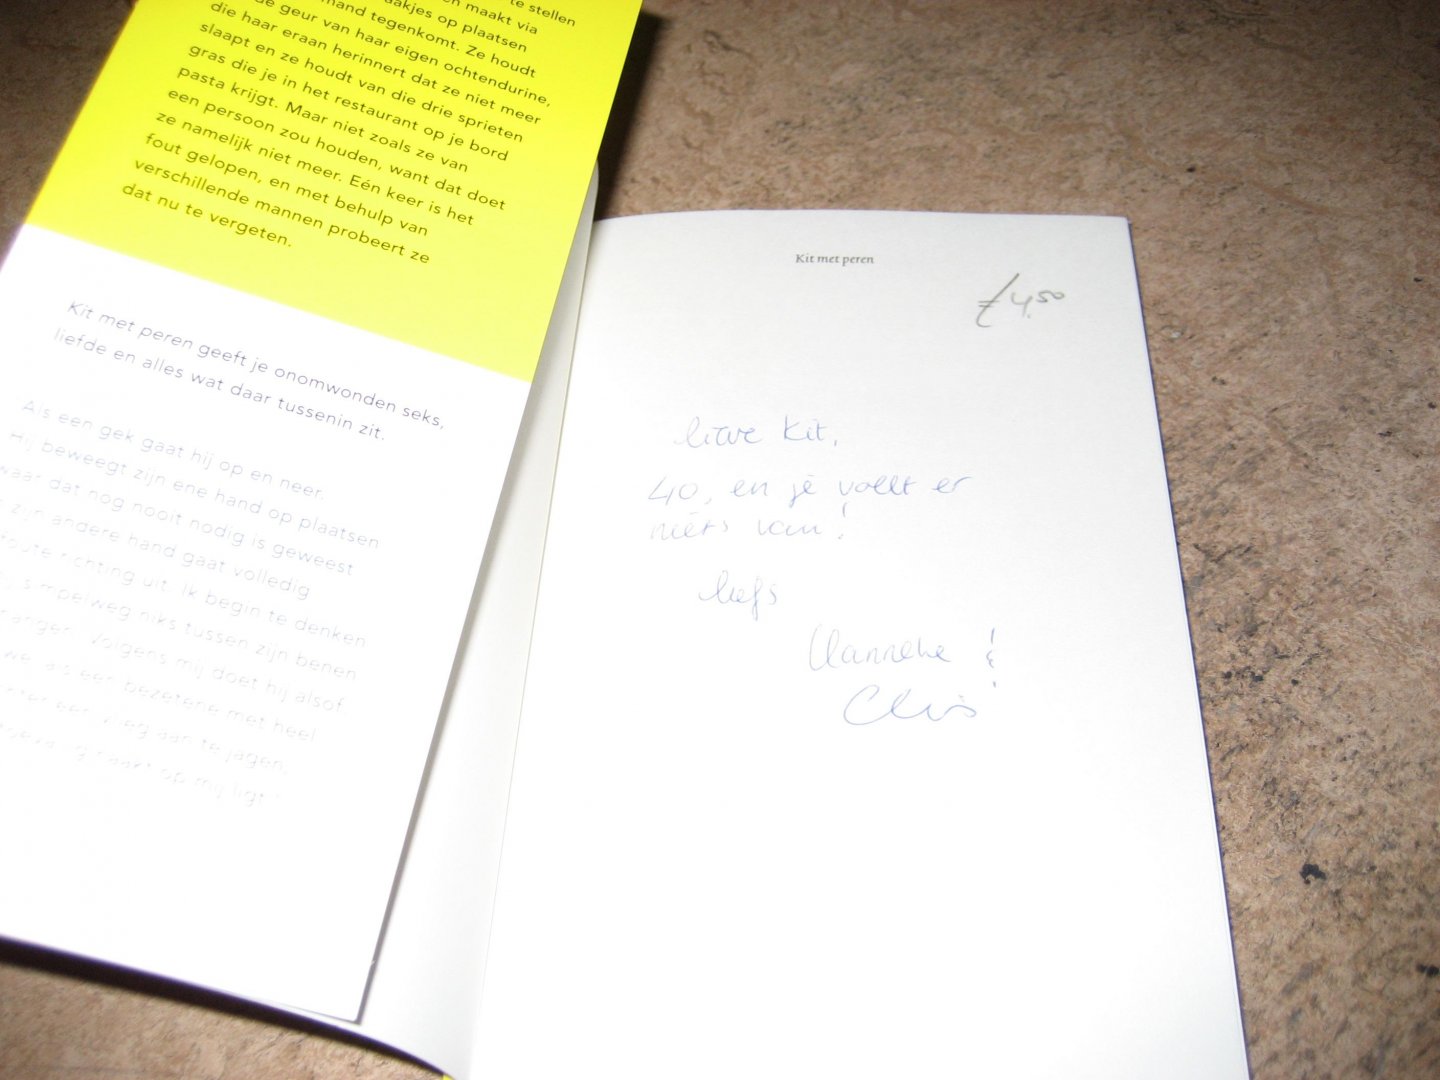 te stellen
maakt via
akjes op plaatsen
mand tegenkomt. Ze houdt
de geur van haar eigen ochtendurine,
die haar eraan herinnert dat ze niet meer
slaapt en ze houdt van die drie sprieten
gras die je in het restaurant op je bord
pasta krijgt. Maar niet zoals ze van
een persoon zou houden, want dat doet
ze namelijk niet meer. Eén keer is het
fout gelopen, en met behulp van
verschillende mannen probeert ze
dat nu te vergeten.
Kit met peren geeft je onomwonden seks,
liefde en alles wat daar tussenin zit.
Als een gek gaat hij op en neer.
Hij beweegt zijn ene hand op plaatsen
waar dat nog nooit nodig is geweest
zijn andere hand gaat volledig
foute richting uit. Ik begin te denken
simpelweg niks tussen zijn benen
hangen. Volgens mij doet hij alsof,
als een bezetene met heel
een vlieg aan te jagen,
op mij ligt.'
Kit met peren
€ 4,50
lieve Kit,
40, en je voelt er
niets van!
liefs
Hanneke &
Chris